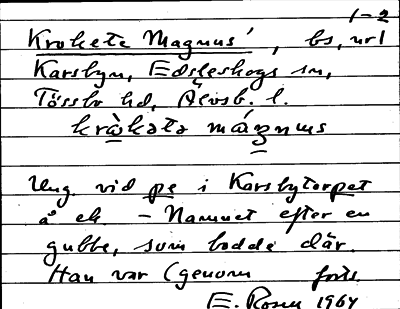 1-2
Krokete Magnus', bs, nr 1
Karsbyn, Edsleskogs sn,
Tössbo hd, Älvsb. l.
krò̱kətə mág̱nus
Ung. vid pe i Karsbytorpet
å ek - Namnet efter en
gubbe, som bodde där.
Han var (genom forts.
E. Rosen 1964